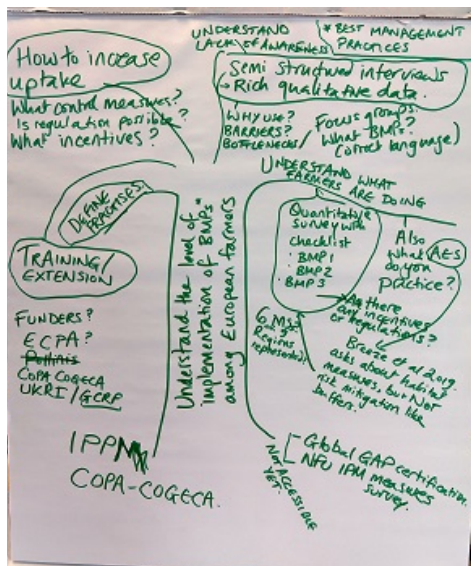 How to increase
uptake
What control measures?
Is regulation possible?
What incentives?
UNDERSTAND
LACK OF AWARENESS
* BEST MANAGEMENT
PRACTICES
Semi structured interviews
→ Rich qualitative data.
WHY USE?
BARRIERS?
BOTTLENECKS
Focus groups?
What BMPs?
(correct language)
DEFINE
PRACTISES.
TRAINING/
EXTENSION
FUNDERS?
ECPA?
Pollinis
COPA COGECA
UKRI/GCRF
IPPN
COPA-COGECA.
Understand the level of
implementation of BMPs*
among European farmers
UNDERSTAND WHAT
FARMERS ARE DOING
Quantitative
survey with
checklist
· BMP1
· BMP2
· BMP3
Also
What do you
practice?
AES
6 MS?
Regions
represented?
Are there
any incentives
or regulations?
Breeze et al 2019.
asks about habitat
measures, but NOT
risk mitigation like
buffers.
Global GAP certification.
NFU IPM measures
survey.
NOT ACCESSIBLE
YET.